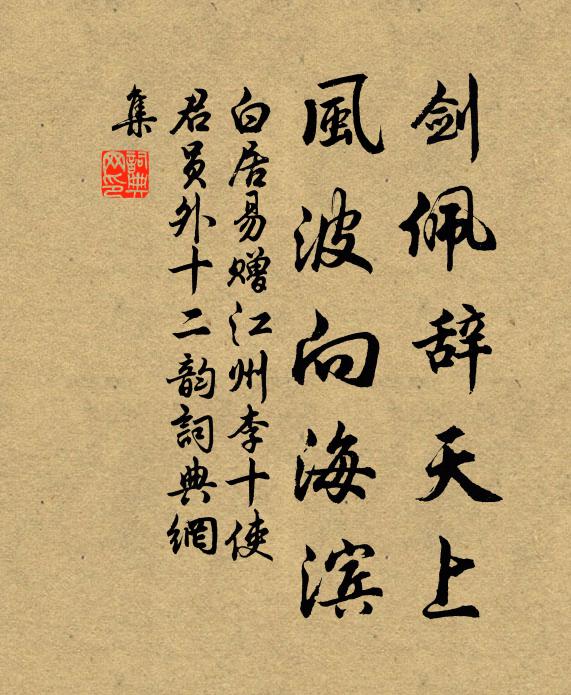 剑佩辞天上
風波向海滨
白居易赠江州李十使
君员外十二韵詞典網
集
詞典网印